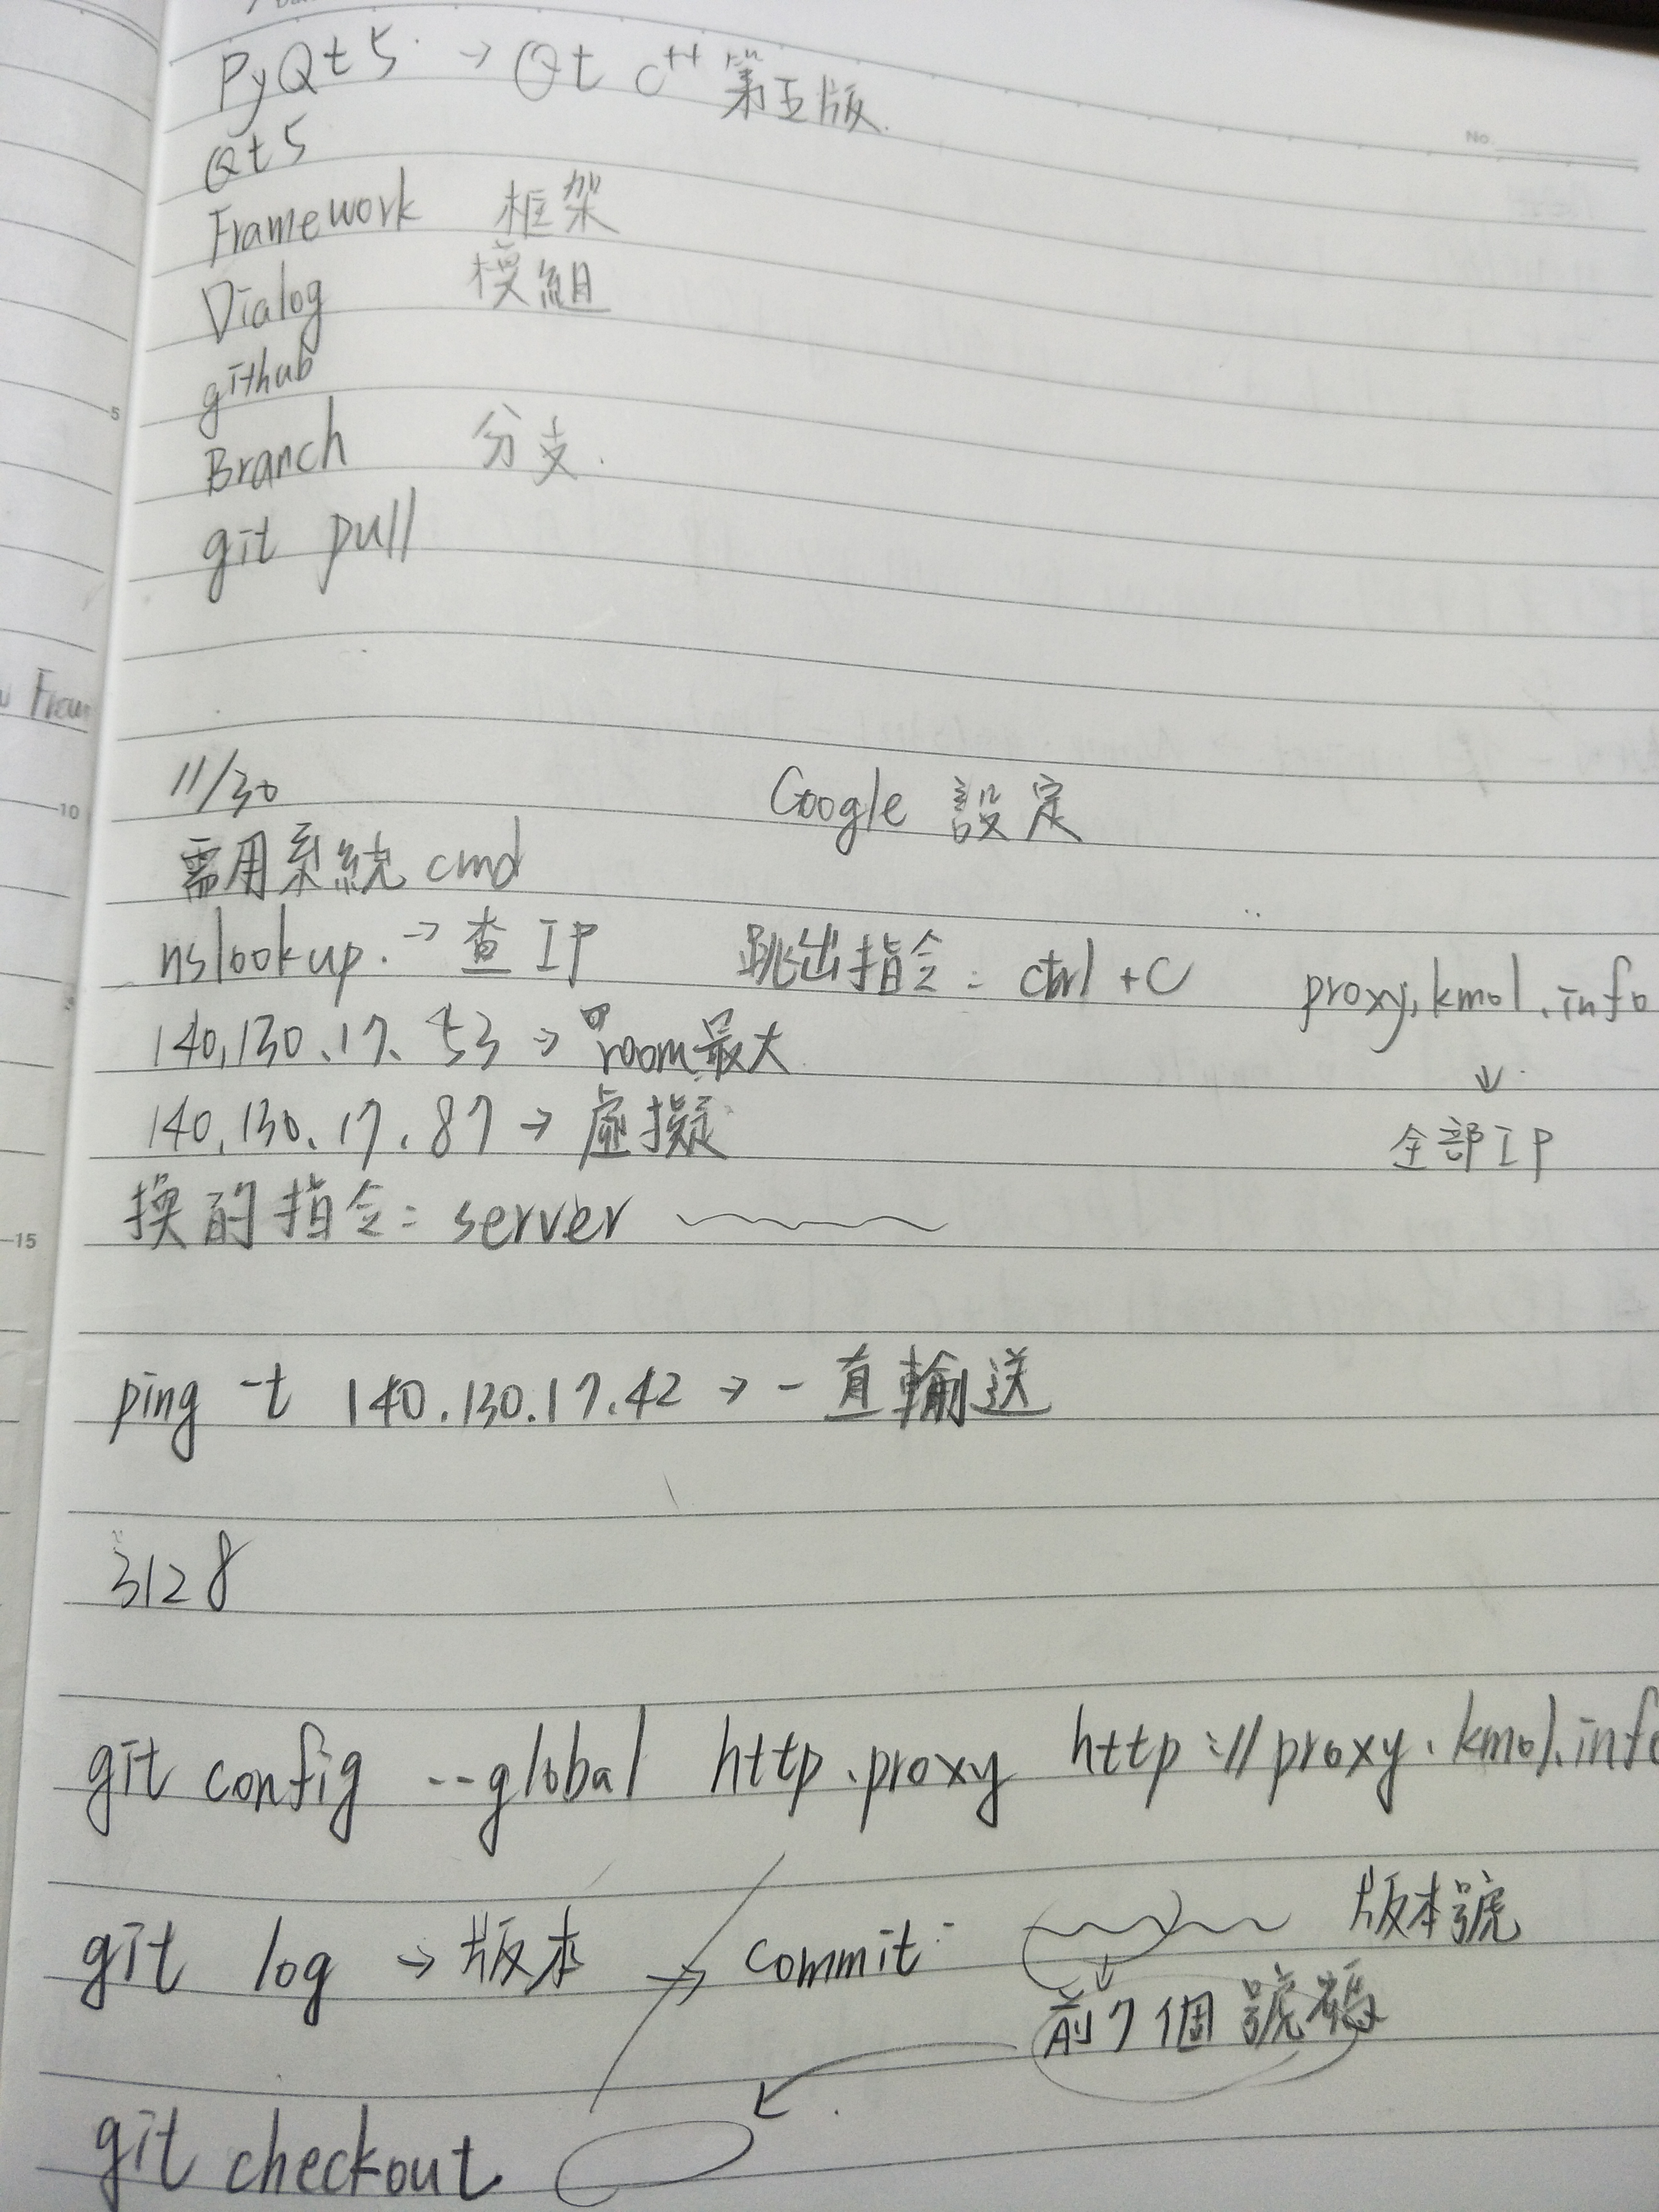 PyQt5 → Qt C++ 第五版
No.
Qt5
Framework 框架
Dialog 模組
github
5
Branch 分支
git pull
11/30 Google 設定
10
需用系統 cmd
nslookup. → 查 IP 跳出指令: ctrl + C proxy.kmol.info
140.130.17.53 → room 最大 ↓
140.130.17.87 → 虛擬 全部IP
換的指令: server
15
ping -t 140.130.17.42 → 一直輸送
3128
git config --global http.proxy http://proxy.kmol.info
git log → 版本 → commit 版本號
↓
前7個號碼
git checkout